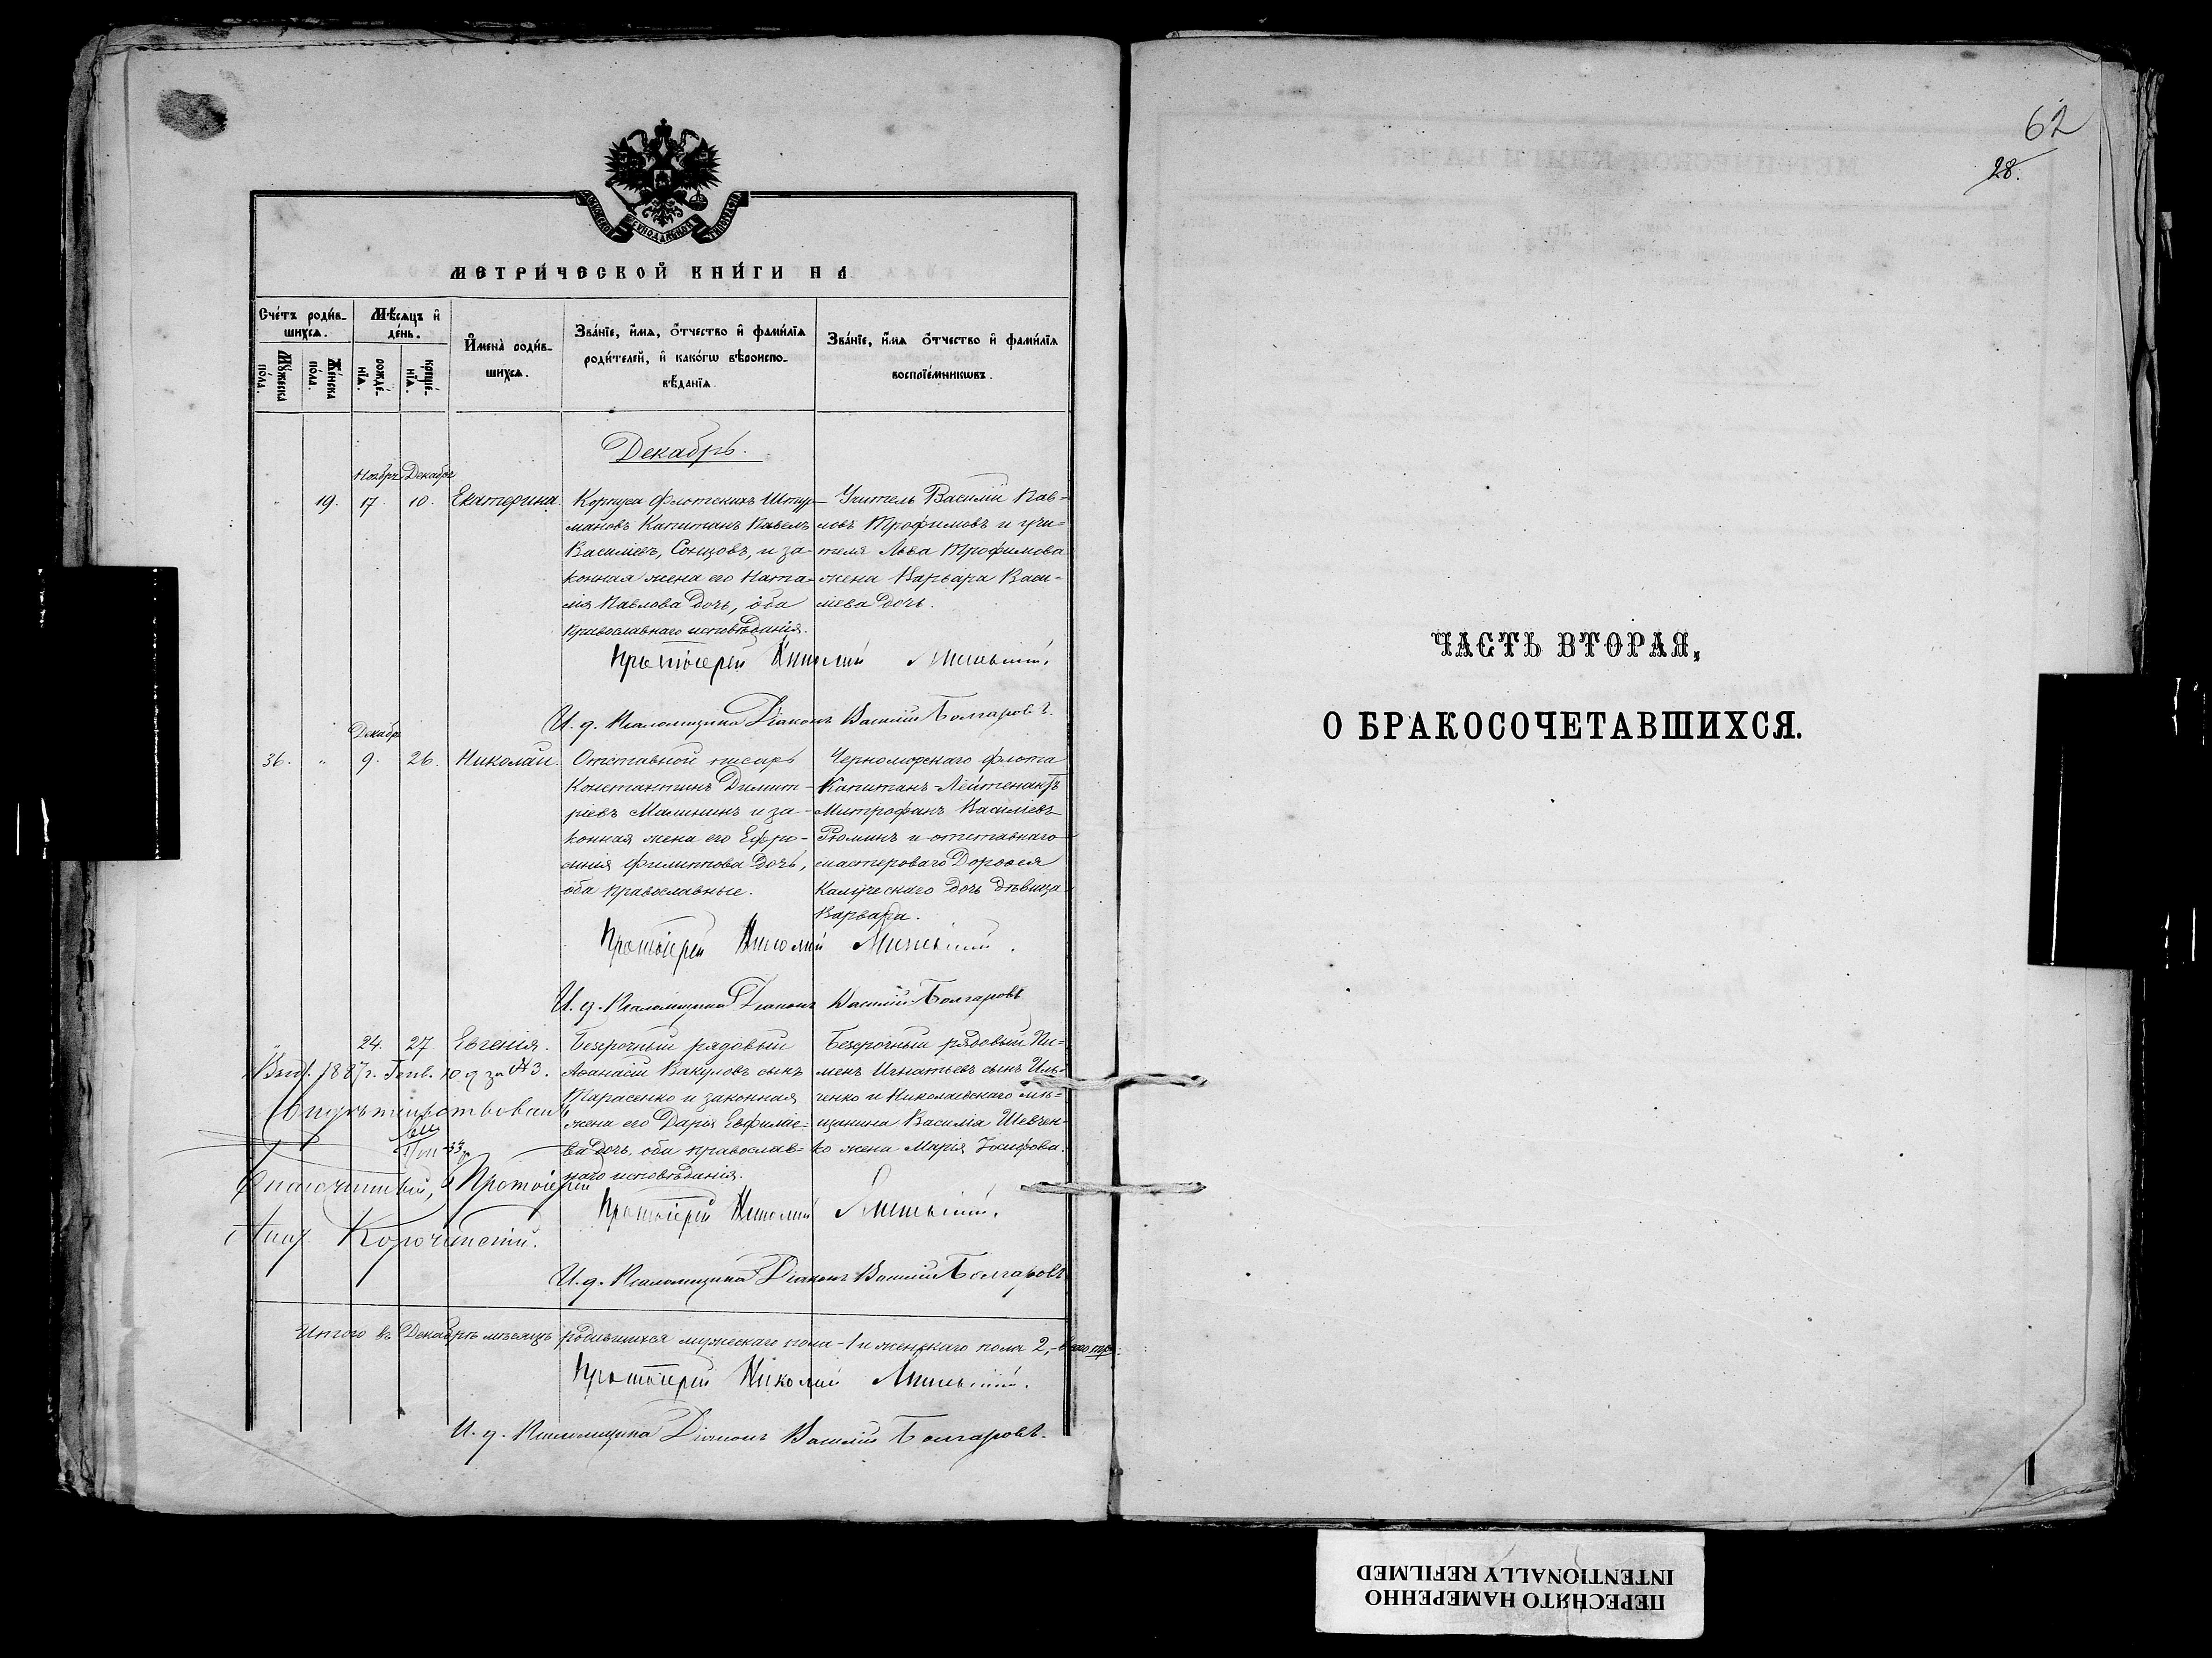 МОСКОВСКОЙ СѴНОДАЛЬНОЙ ТИПОГРАФІИ
МЕТРИ́ЧЕСКОЙ КНИ́ГИ НА
Сче́тъ роди́в-
шихсѧ.
Мѣ́сѧцъ и҆
де́нь.
Мꙋ́жеска
по́ла.
Же́нска
по́ла.
рожде́-
нїѧ.
креще́-
нїѧ.
И҆мена̀ роди́в-
шихсѧ.
Зва́нїе, и҆́мѧ, ѻ҆́тчество и҆ фами́лїѧ
роди́телей, и҆ како́гѡ вѣроиспо-
вѣ́данїѧ
Зва́нїе, и҆́мѧ ѻ҆́тчество и҆ фами́лїѧ
воспрїе́мникѡвъ.
Декабрь.
Ноябрь Декабрь
" 19. 17. 10. Екатерина.
Корпуса Флотскихъ Штур-
мановъ Капитанъ Павелъ
Василіевъ, Сонцовъ, и за-
конная жена его Ната-
лія Павлова дочь, оба
православнаго исповѣданія.
Учитель Василій Пав-
ловъ Трофимовъ и учи-
теля Льва Трофимова
жена Варвара Васи-
лиева дочь.
Протоіерей Николай
И. д. Псаломщика Діаконъ Василій Болгаровъ.
Декабрь
36. " 9. 26. Николай.
Отставной писарь
Константинъ Димит-
ріевъ Малининъ и за-
конная жена его Ефро-
синія Филиппова дочь,
оба православные.
Черноморскаго флота
Капитанъ-Лейтенантъ
Митрофанъ Василіевъ
Рюминъ и отставнаго
мастероваго Дороѳея
дочь дѣвица
Варвара.
Протоіерей Николай
И. д. Псаломщика Діаконъ Василій Болгаровъ
24. 27 Евгенія.
Безсрочный рядовый
Аѳанасій Вакуловъ сынъ
Тарасенко и законная
жена его Дарія Евфиміе-
ва дочь, оба православ-
наго исповѣданія.
Безсрочный рядовый Пи-
менъ Игнатьевъ сынъ Иль-
ченко и Николаевскаго мѣ-
щанина Василія Шевчен-
ко жена Марія Іосифова.
Выд. 1887г. Генв. 10 д за №3.
Благочинный, Протоіерей
Протоіерей Николай
И. д. Псаломщика Діаконъ Василій Болгаровъ
Итого въ Декабрѣ мѣсяцѣ родившихся мужескаго пола-1 и женскаго пола 2,- всего три.
Протоіерей Николай
И. д. Псаломщика Діаконъ Василій Болгаровъ.
62
28.
ЧАСТЬ ВТОРАЯ,
О БРАКОСОЧЕТАВШИХСЯ.
ПЕРЕСНЯТО НАМЕРЕННО
INTENTIONALLY REFILMED